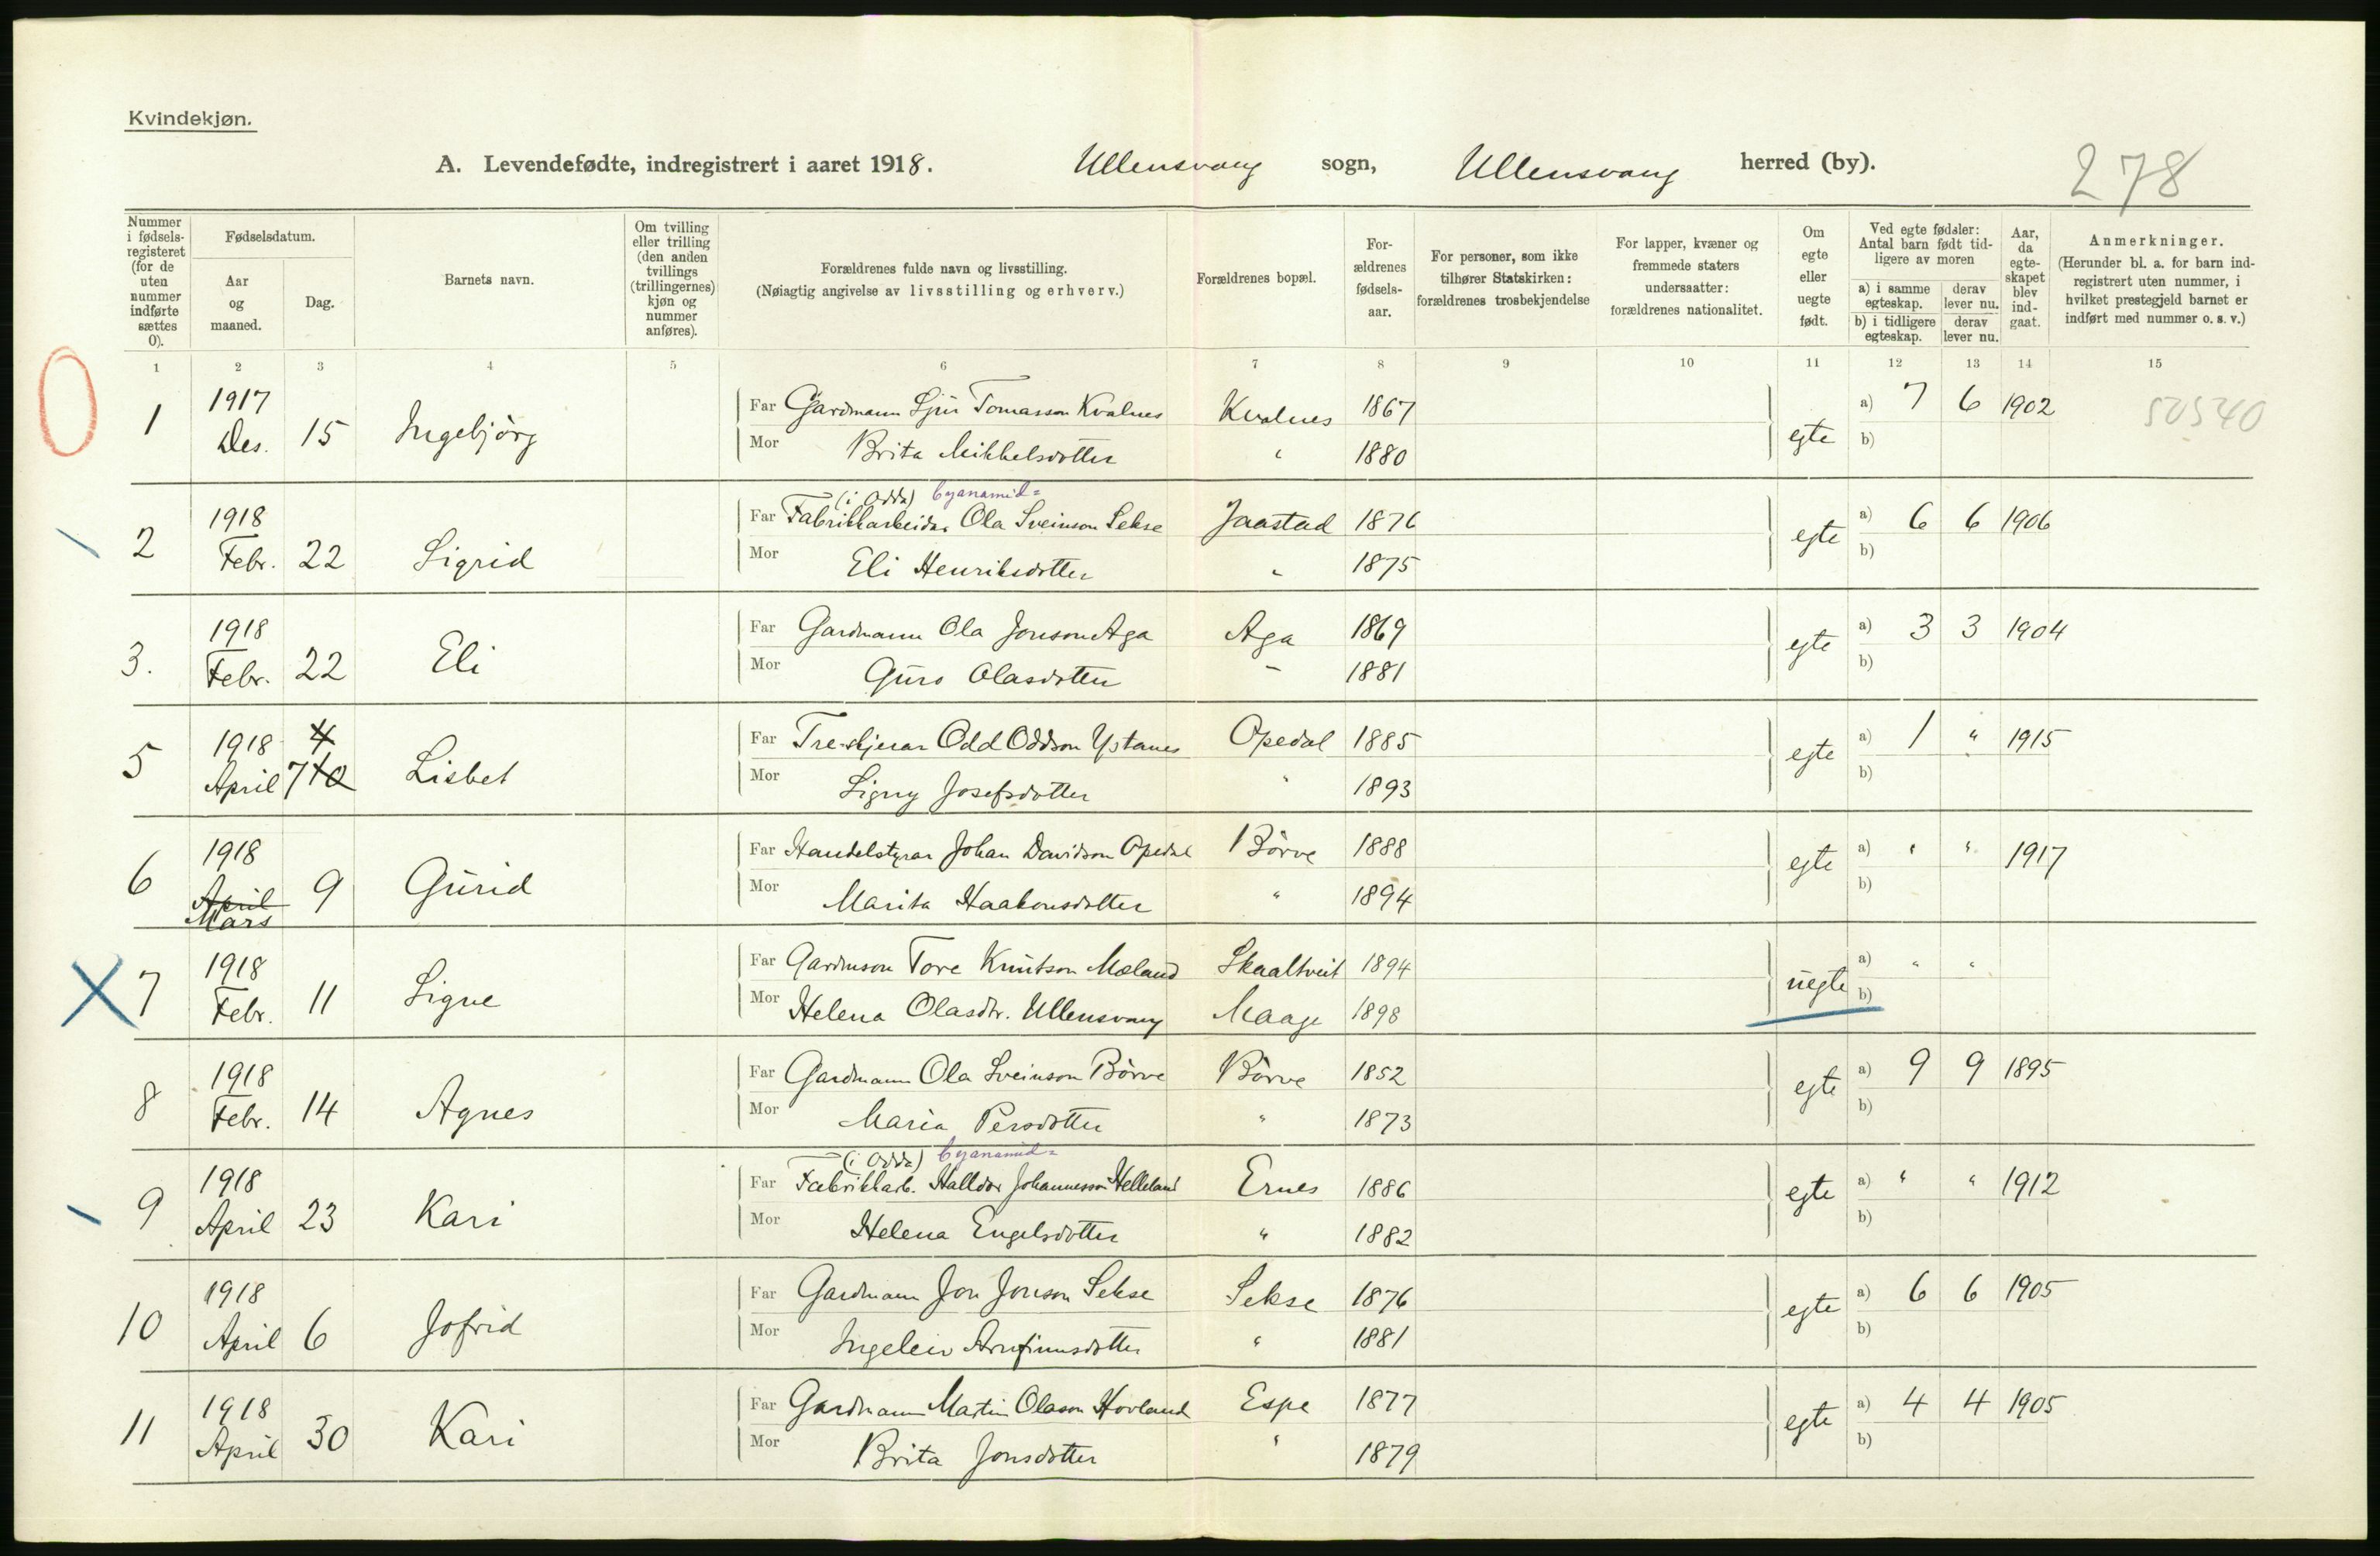 Kvindekjøn.
A. Levendefødte, indregistrert i aaret 1918. Ullensvang sogn, Ullensvang herred (by). 278
Nummer i fødselsregisteret (for de uten nummer indførte sættes 0).
Fødselsdatum.
Aar og maaned.
Dag.
Barnets navn.
Om tvilling eller trilling (den anden tvillings (trillingernes) kjøn og nummer anføres).
Forældrenes fulde navn og livsstilling.
(Nøiagtig angivelse av livsstilling og erhverv.)
Forældrenes bopæl.
Forældrenes fødselsaar.
For personer, som ikke tilhører Statskirken: forældrenes trosbekjendelse
For lapper, kvæner og fremmede staters undersaatter: forældrenes nationalitet.
Om egte eller uegte født.
Ved egte fødsler: Antal barn født tidligere av moren
a) i samme egteskap. derav lever nu.
b) i tidligere egteskap. derav lever nu.
Aar, da egteskapet blev indgaat.
Anmerkninger.
(Herunder bl. a. for barn indregistrert uten nummer, i hvilket prestegjeld barnet er indført med nummer o. s. v.)
1 2 3 4 5 6 7 8 9 10 11 12 13 14 15
0
1 1917 Des. 15 Ingebjörg
Far Gardmann Sjur Tomasson Kvalnes Kvalnes 1867 egte a) 7 6 1902 50540
Mor Brita Mikkelsdotter " 1880 b)
2 1918 Febr. 22 Sigrid
(i Odda) Cyanamid=
Far Fabrikkarbeidar Ola Sveinson Sekse Jaastad 1876 egte a) 6 6 1906
Mor Eli Henriksdotter " 1875 b)
3. 1918 Febr. 22 Eli
Far Gardmann Ola Jonson Aga Aga 1869 egte a) 3 3 1904
Mor Guro Olasdotter " 1881 b)
5 1918 April 4 7 10 Lisbet
Far Treskjerar Odd Oddson Ystanes Opedal 1885 egte a) 1 " 1915
Mor Signy Josefsdotter " 1893 b)
6 1918 April Mars 9 Gurid
Far Handelstyrar Johan Davidson Opedal Börve 1888 egte a) " " 1917
Mor Marita Haakonsdotter " 1894 b)
7 1918 Febr. 11 Signe
Far Gardmson Tore Knutson Mæland Skaaltveit 1894 uegte a) " "
Mor Helena Olasdtr. Ullensvang Maage 1898 b)
8 1918 Febr. 14 Agnes
Far Gardmann Ola Sveinson Börve Börve 1852 egte a) 9 9 1895
Mor Maria Persdotter " 1873 b)
9 1918 April 23 Kari
(i Odda) Cyanamid=
Far Fabrikkarb. Halldor Johannesson Helleland Ernes 1886 egte a) " " 1912
Mor Helena Engelsdotter " 1882 b)
10 1918 April 6 Jofrid
Far Gardmann Jon Jonson Sekse Sekse 1876 egte a) 6 6 1905
Mor Ingeleiv Arnfinnsdotter " 1881 b)
11 1918 April 30 Kari
Far Gardmann Martin Olason Hovland Espe 1877 egte a) 4 4 1905
Mor Brita Jonsdotter " 1879 b)